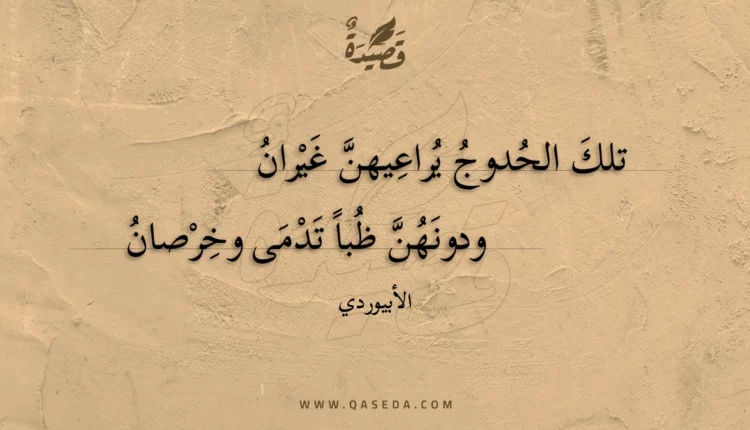 قَصِيدَةٌ
تلكَ الحُدوجُ يُراعِيهنَّ غَيْرانُ
ودونَهُنَّ ظُباً تَدْمَى وخِرْصانُ
الأبيوردي
WWW.QASEDA.COM